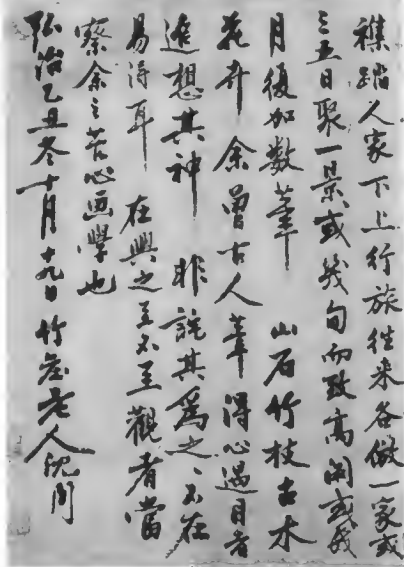 襍踏人家下上行旅往来各儆一家或
三五日聚一景或幾旬而致高閑或成
月復加数筆 山石竹枝古木
花卉 余嘗古人筆得心過目者
遠想其神 非詫其爲之〻不在
易得耳 在興之至不至觀者當
察余之苦心画學也
弘治乙丑冬十月十九日竹
老人沈